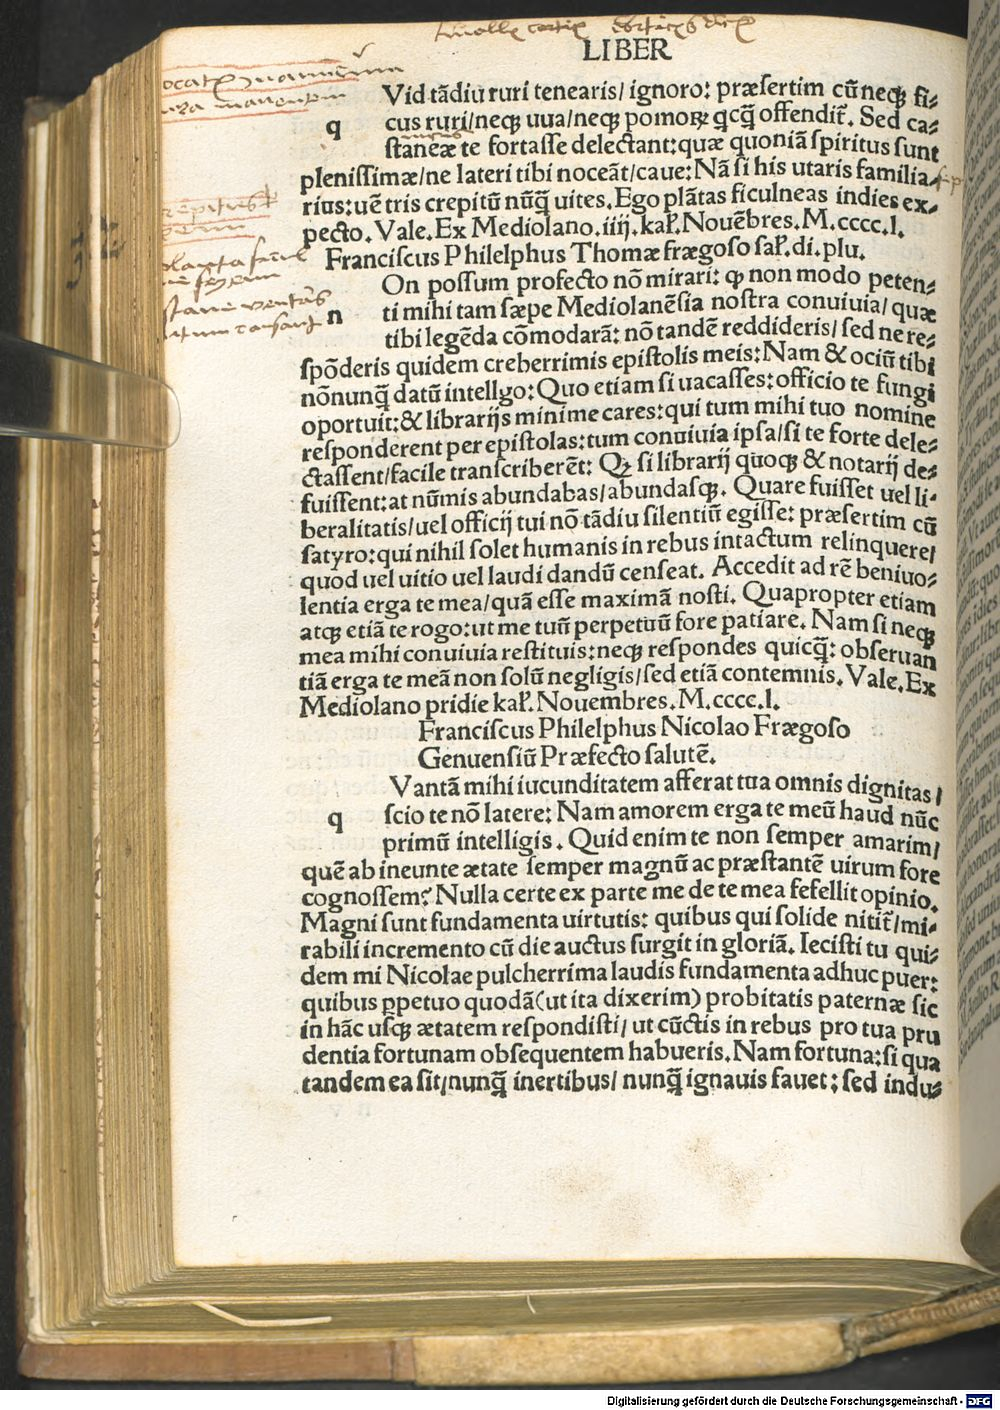 LIBER
Vid tādiu ruri tenearis/ ignoro: præſertim cū neqꝫ fi⸗
q
cus ruri/neqꝫ uua/neqꝫ pomoꝝ qcꝗ̄ offendiť. Sed ca⸗
ſtaneæ te fortaſſe delectant: quæ quoniā ſpiritus ſunt
pleniſſimæ/ne lateri tibi noceāt/caue: Nā ſi his utaris familia⸗
rius: uētris crepitū nūꝗ̄ uites. Ego plātas ficulneas indies ex⸗
pecto. Vale. Ex Mediolano. iiij. kał. Nouēbres. M.cccc.l.
Franciſcus Philelphus Thomæ frægoſo ſał. di. plu.
On poſſum profecto nō mirari: ꝙ non modo peten⸗
n
ti mihi tam ſæpe Mediolanēſia noſtra conuiuia/ quæ
tibi legēda cōmodarā: nō tandē reddideris/ ſed ne re⸗
ſpōderis quidem creberrimis epiſtolis meis: Nam & ociū tibi
nōnunꝗ̄ datū intellgo: Quo etiam ſi uacaſſes: officio te fungi
oportuit: & librarijs minime cares: qui tum mihi tuo nomine
reſponderent per epiſtolas: tum conuiuia ipſa/ ſi te forte dele⸗
ctaſſent/facile tranſcriberēt: Qꝫ ſi librarij quoqꝫ & notarij de⸗
fuiſſent: at nūmis abundabas/abundaſqꝫ. Quare fuiſſet uel li⸗
beralitatis/uel officij tui nō tādiu ſilentiū egiſſe: præſertim cū
ſatyro: qui nihil ſolet humanis in rebus intactum relinquere/
quod uel uitio uel laudi dandū cenſeat. Accedit ad rē beniuo⸗
lentia erga te mea/quā eſſe maximā noſti. Quapropter etiam
atqꝫ etiā te rogo: ut me tuū perpetuū fore patiare. Nam ſi neqꝫ
mea mihi conuiuia reſtituis: neqꝫ reſpondes quicꝗ̄: obſeruan
tiā erga te meā non ſolū negligis/ſed etiā contemnis. Vale. Ex
Mediolano pridie kał. Nouembres. M.cccc.l.
Franciſcus Philelphus Nicolao Frægoſo
Genuenſiū Præfecto ſalutē.
Vantā mihi iucunditatem afferat tua omnis dignitas/
q
ſcio te nō latere: Nam amorem erga te meū haud nūc
primū intelligis. Quid enim te non ſemper amarim/
quē ab ineunte ætate ſemper magnū ac præſtantē uirum fore
cognoſſem? Nulla certe ex parte me de te mea fefellit opinio.
Magni ſunt fundamenta uirtutis: quibus qui ſolide nitiť/mi⸗
rabili incremento cū die auctus ſurgit in gloriā. Ieciſti tu qui⸗
dem mi Nicolae pulcherrima laudis fundamenta adhuc puer:
quibus ꝑpetuo quodā(ut ita dixerim) probitatis paternæ ſic
in hāc uſqꝫ ætatem reſpondiſti/ ut cūctis in rebus pro tua pru
dentia fortunam obſequentem habueris. Nam fortuna: ſi qua
tandem ea ſit/nunꝗ̄ inertibus/ nunꝗ̄ ignauis fauet: ſed indu⸗
Digitalisierung gefördert durch die Deutsche Forschungsgemeinschaft - DFG